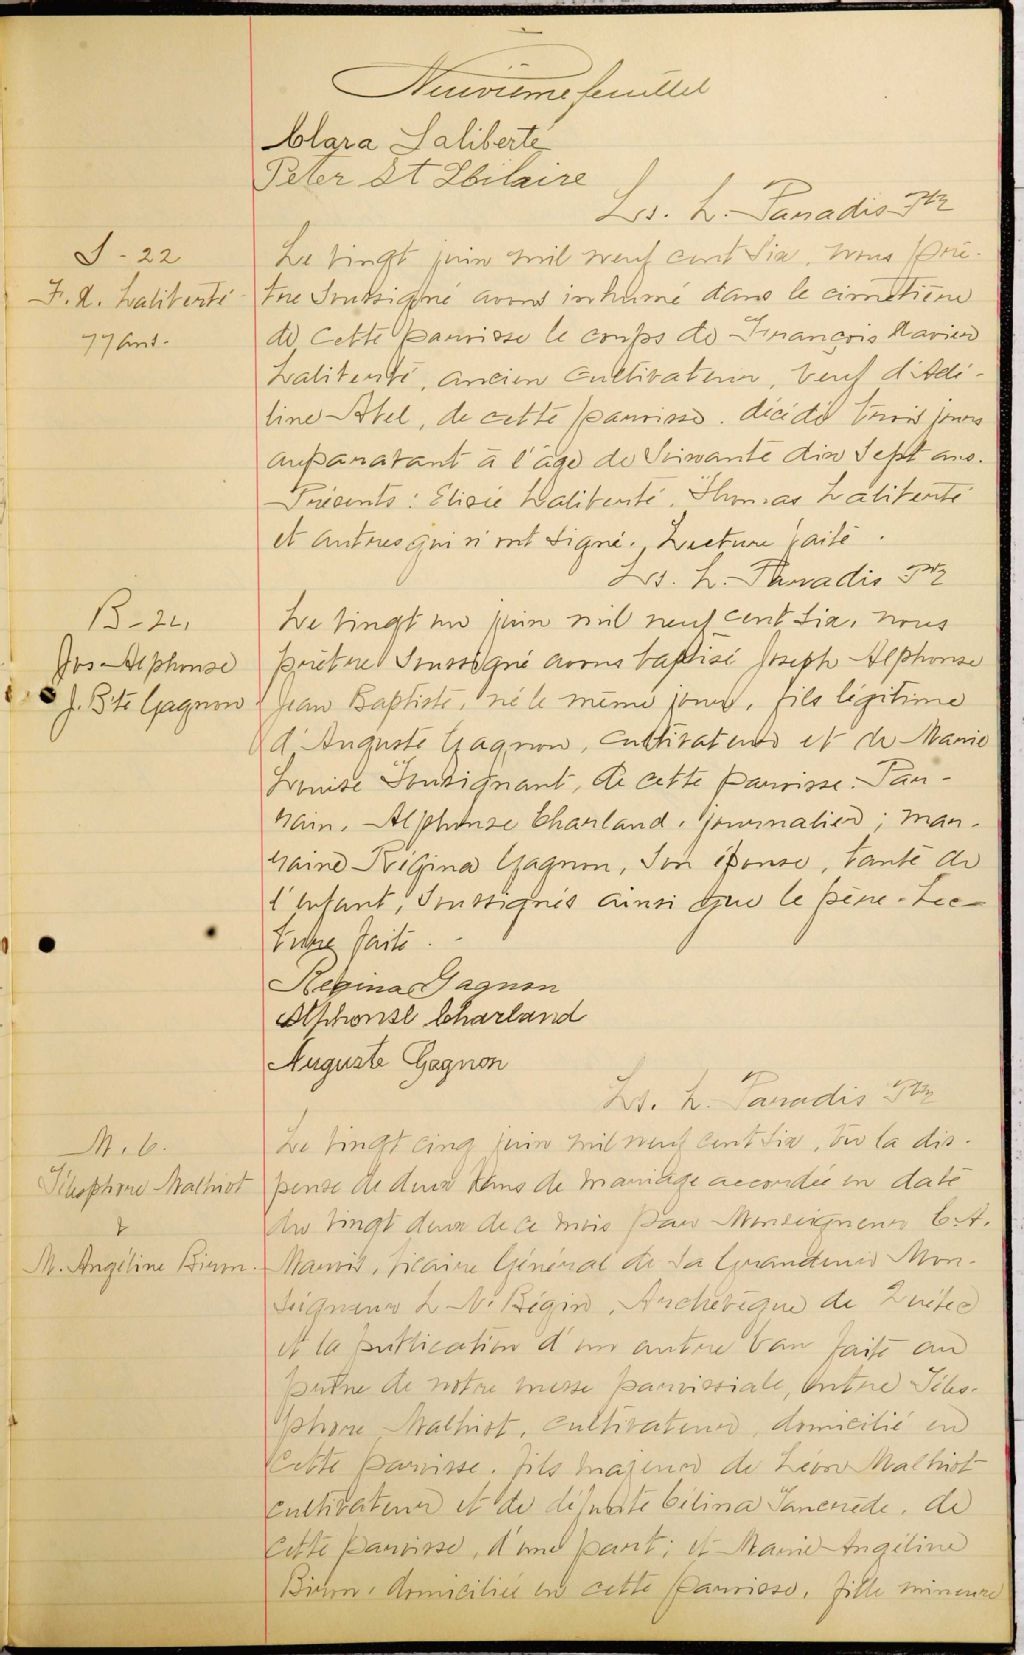 Neuvième feuillet
Clara Laliberté
Peter St Hilaire
Ls. L. Paradis Ptr
S - 22
F. X. Laliberté
77 ans.
Le vingt juin mil neuf cent six, nous prê-
tre soussigné avons inhumé dans le cimetière
de cette paroisse le corps de François Xavier
Laliberté, ancien cultivateur, veuf d'Adé-
line Abel, de cette paroisse. décédé trois jours
auparavant à l'âge de soixante dix sept ans.
Présents: Elisée Laliberté, Thomas Laliberté
et autres qui n'ont signé. Lecture faite.
Ls. L. Paradis Ptr
B - 24
Jos-Alphonse
J. Bte Gagnon
Le vingt un juin mil neuf cent six, nous
prêtre soussigné avons baptisé Joseph Alphonse
Jean Baptiste, né le même jour, fils légitime
d'Auguste Gagnon, cultivateur et de Marie
Louise Tousignant, de cette paroisse. Par-
rain, Alphonse Charland, journalier; mar-
raine Régina Gagnon, son épouse, tante de
l'enfant, soussignés ainsi que le père. Lec-
ture faite.
Regina Gagnon
Alphonse Charland
Auguste Gagnon
Ls. L. Paradis Ptr
M. 6.
Télesphore Malhiot
&
M. Angéline Biron.
Le vingt cinq juin mil neuf cent six, vu la dis-
pense de deux bans de mariage accordée en date
du vingt deux de ce mois par Monseigneur C. A.
Marois, vicaire Général de Sa Grandeur Mon-
seigneur L. N. Bégin, Archevêque de Québec
et la publication d'un autre ban faite au
prône de notre messe paroissiale, entre Téles-
phore Malhiot, cultivateur, domicilié en
cette paroisse, fils majeur de Léon Malhiot
cultivateur et de défunte Célina Tancrède, de
cette paroisse, d'une part; et Marie Angéline
Biron, domiciliée en cette paroisse, fille mineure